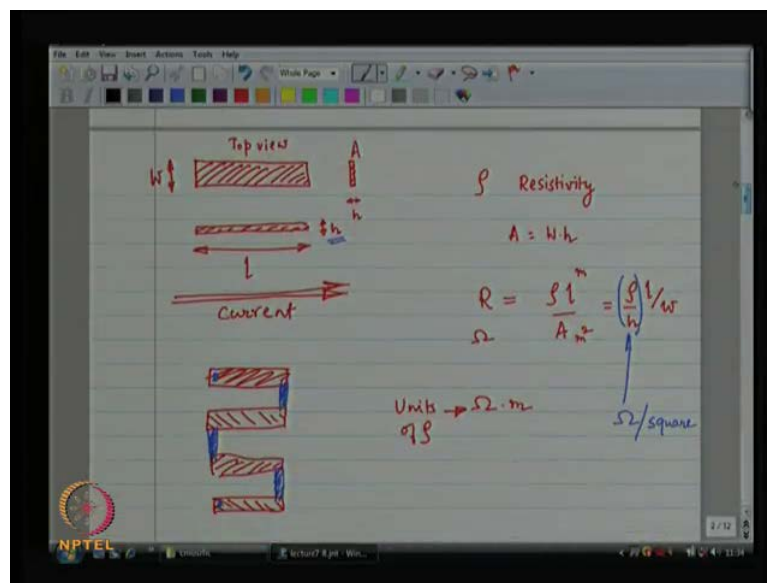 File Edit View Insert Actions Tools Help
Whole Page
B I
Top view
W
A
h
h
l
Current
ρ Resistivity
A = W.h
R = ρ l m / A m² = (ρ/h) l/w
Ω
Units → Ω.m
of ρ
Ω/square
2/12
NPTEL
lecture7 8.jnt - Win...
11:34